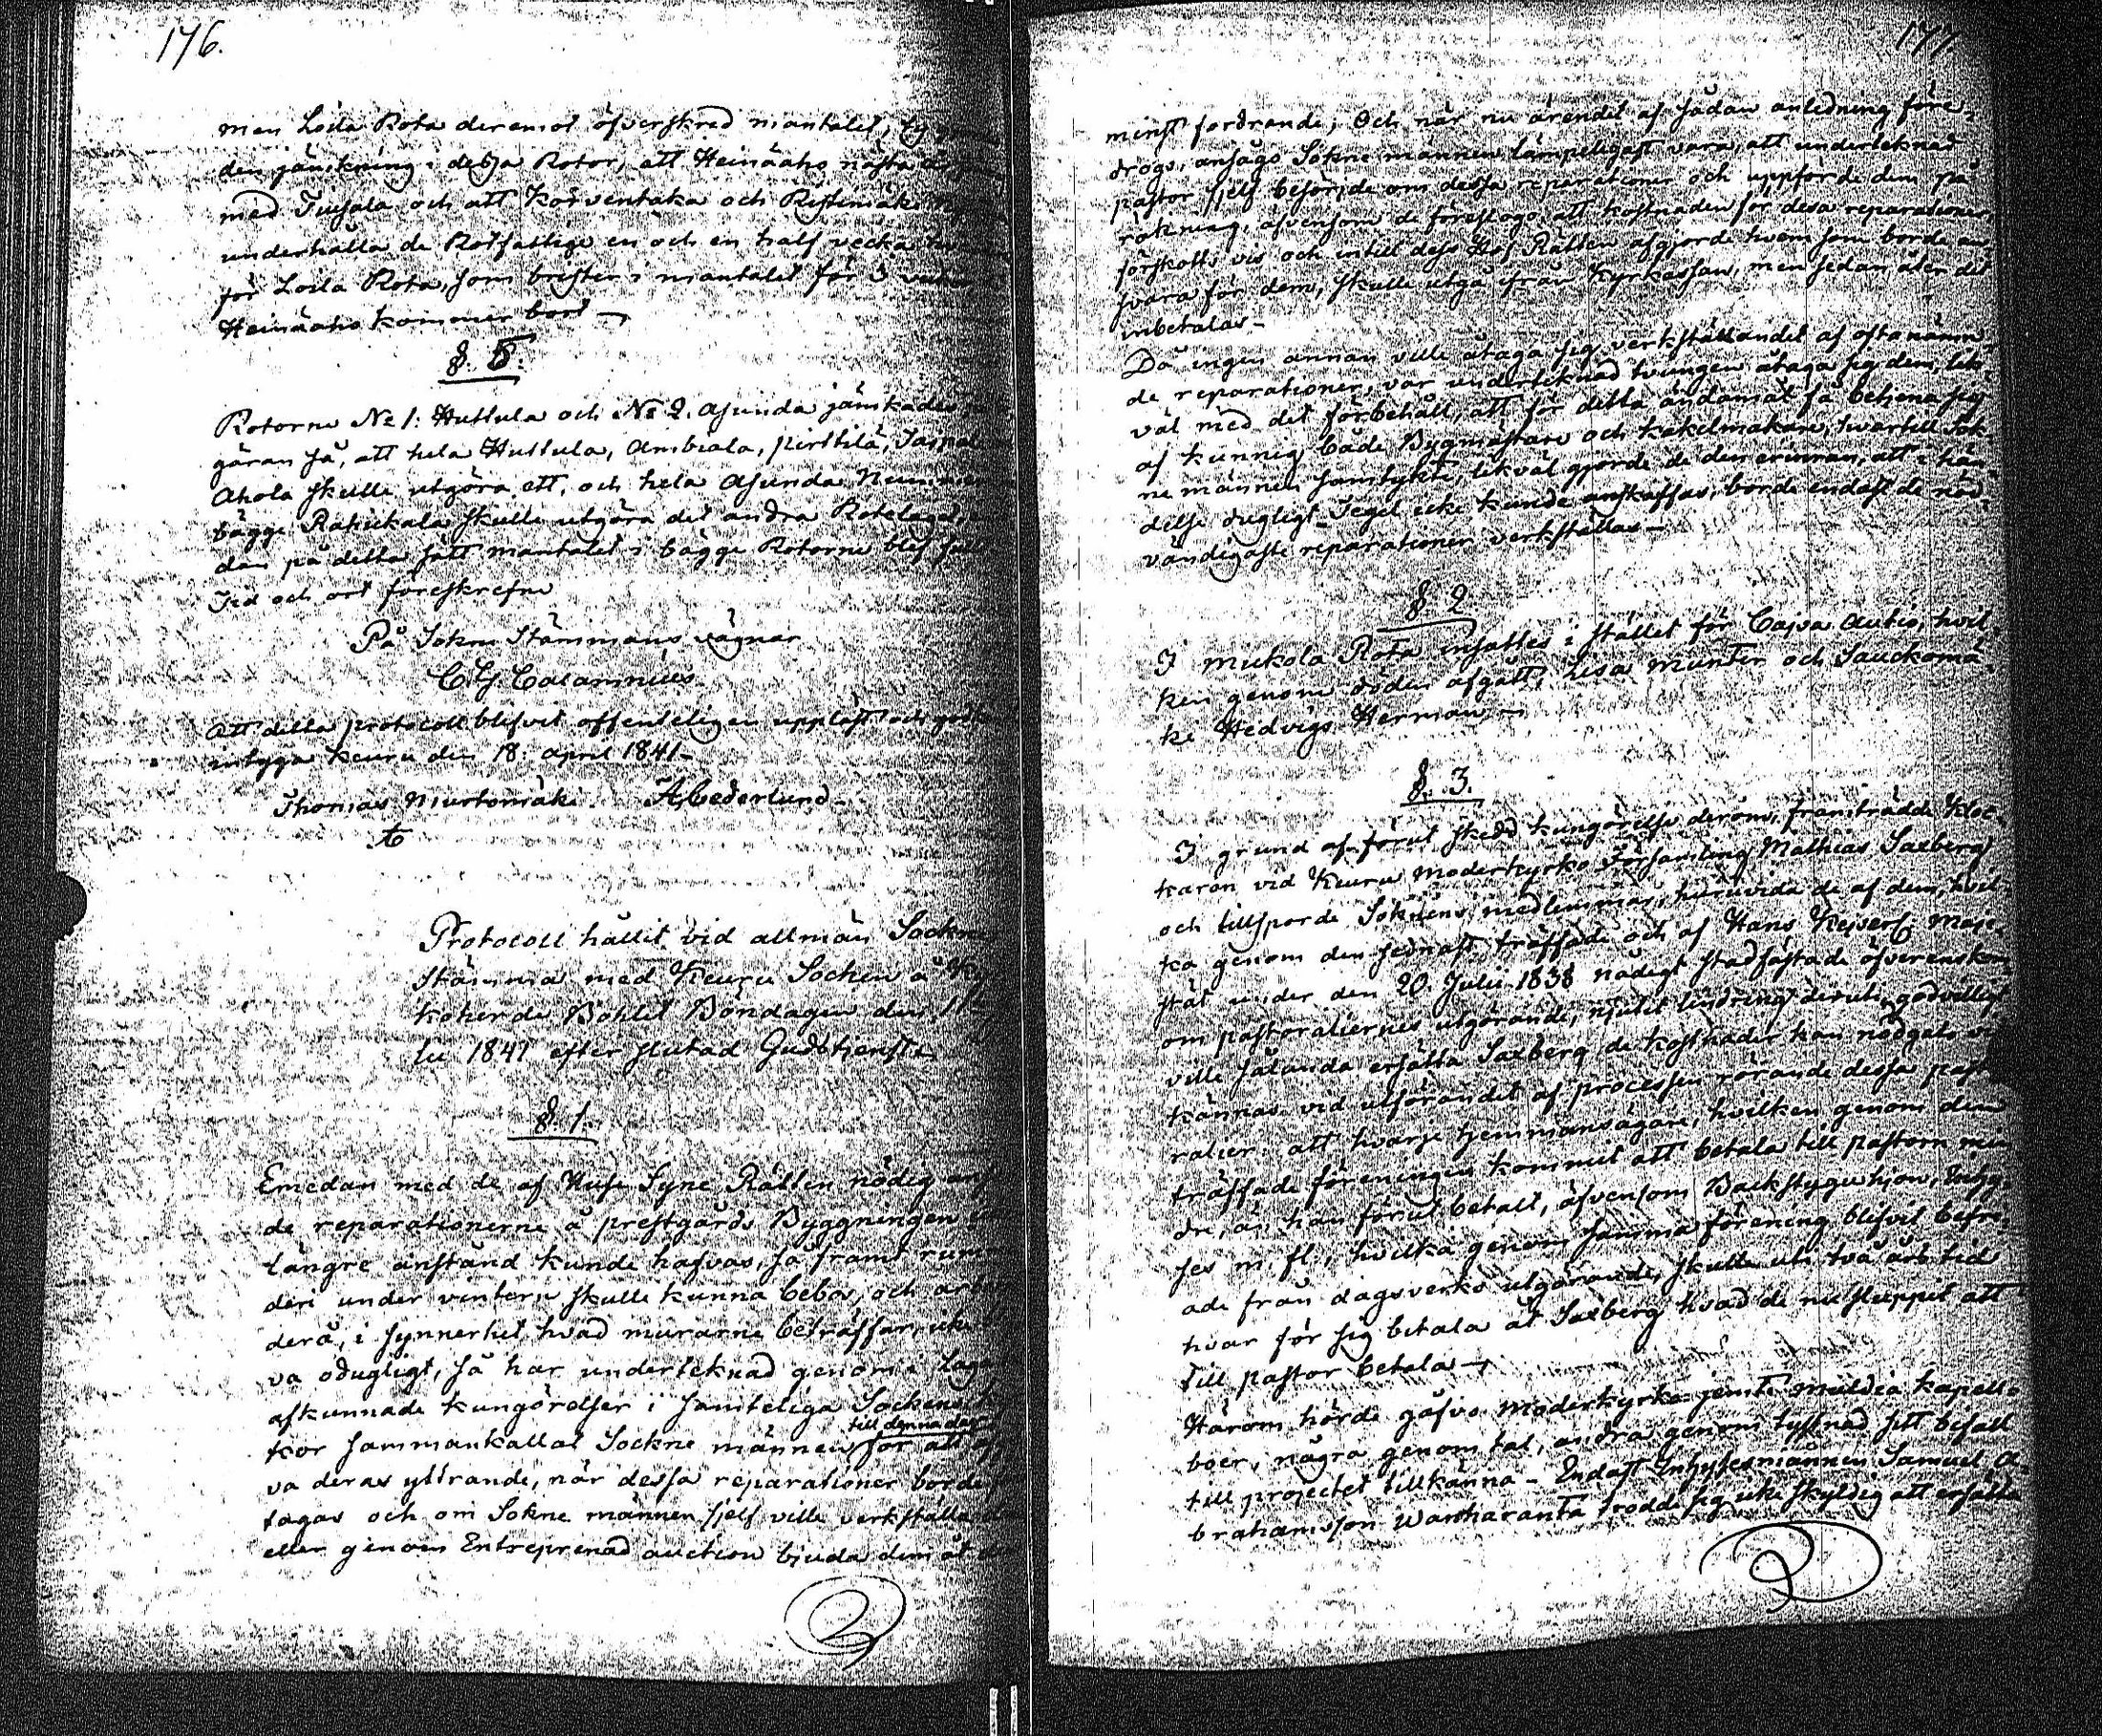 176.
men Loila Rota deremot öfverskred mantalet,
den jämkning i dessa Rotor, att Heinäaho nästa
med Tiusala och att Korventaka och Ristimäki
underhålla de Rotfattige en och en half vecka
för Loila Rota, som brister i mantalet för
Heinäaho kommer bort —
§. 5.
Rotorne No 1: Huttula och No 2. Asunda jämkades
gäran så, att hela Huttula, Ambiala, Pirttilä,
Ahola skulle utgöra ett, och hela Asunda
bägge Rahikkala skulle utgöra det andra Rotelaget,
dan på detta sätt mantalet i bägge Rotorne blef
Tid och ort föreskrefne
På Sokne Stämmans vägnar
C.G. Calamnius
Att detta protocoll blifvit offenteligen uppläst och
intyga Keuru den 18: April 1841—
Thomas Murtomäki A Cederlund
Protocoll hållit vid allmän Sockne
Stämma med Keuru Sochen å
koherde Bohlet Böndagen den
lii 1841 efter slutad Gudstjenst
§. 1.
Emedan med de af Huse Syne Rätten nödig
de reparationerne å prestgårds Byggningen
längre anstånd kunde hafvas, så framt
deri under vintern skulle kunna bebos, och
derå, i synnerhet hvad murarne beträffar, icke
va odugligt, så har undertecknad genom i
afkunnade kungörelser i samteliga Sockens
kor sammankallat Sockne männen till denna dag för att
va deras yttrande, när dessa reparationer borde
tagas och om Sokne männen sjelf ville verkställa
eller genom Entreprenad auction bjuda dem åt
177
minst fordrande; Och när nu ärendet af sådan anledning före-
drogs, ansågo Sokne männen lämpeligast vara, att undertecknad
pastor sjelf besörjde om dessa reparationer och uppförde dem på
räkning, äfvensom de föreslogo, att kostnaden för dessa reparationer,
förskotts vis och intill dess Hof Rätten afgjorde hvem som borde an-
svara för dem, skulle utgå ifrån Kyrkassan, men sedan åter dit
inbetalas—
Då ingen annan ville åtaga sig verkställandet af oftanämn-
de reparationer, var undertecknad tvungen åtaga sig dem, lik-
väl med det förbehåll, att för detta ändamål få betjena sig
af kunnig både Bygmästare och kakelmakare, hvartill Sok-
ne männen samtykte, likväl gjorde de den erinran, att i hän-
delse dugligt Tegel icke kunde anskaffas, borde endast de nöd-
vändigaste reparationer verkställas—
§. 2
I Mukola Rota insattes i stället för Cajsa Autio, hvil-
ken genom döden afgått, Lisa Munter och Sauckomä-
ki Hedvigs Herman,—
§. 3.
I grund af förut skedd kungörelse derom, framträdde Kloc-
karen vid Keuru Moderkyrko Församling Mathias Saxberg
och tillsporde Soknens medlemmar, huruvida de af dem, hvil-
ka genom den sednast träffade och af Hans Kejserl Maje-
stät under den 20. Julii 1838 nådigt stadfästade öfverenskom
om pastoraliernes utgörande, njutit lindring deruti, godvilligt
ville sålunda ersätta Saxberg de kostnader han nödgats
kännas vid utförandet af processen rörande dessa pasto
ralier: att hvarje hemmansägare, hvilken genom den
träffade föreningen kommit att betala till pastorn min
dre, än han förut betalt, äfvensom Backstuguhjon, Inhy-
ses m. fl., hvilka genom samma förening blifvit befri-
ade från dagsverks utgörande, skulle uti två års tid
hvar för sig betala åt Saxberg hvad de nu sluppit att
till pastor betala—
Härom hörde gåfvo moderkyrko jemte Muldia kapell-
boer, några genom tal, andra genom tystnad sitt bifall
till projectet tillkänna - Endast Inhysesmannen Samuel A-
brahamsson Wanharanta trodde sig icke skyldig att ersätta